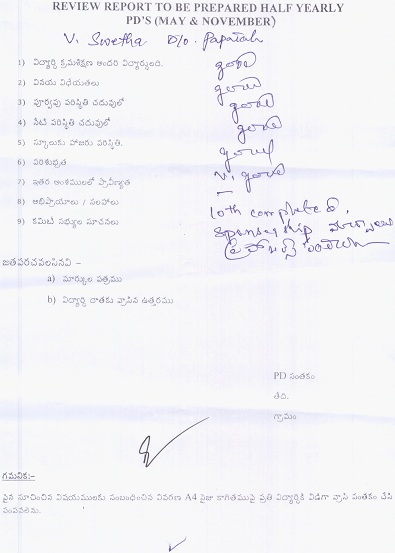 REVIEW REPORT TO BE PREPARED HALF YEARLY
PD'S (MAY & NOVEMBER)
V. Swetha D/o. Papaiah
1) విద్యార్థి క్రమశిక్షణ అందరి విద్యార్థులది. good
2) వినయ విధేయతలు good
3) పూర్వపు పరిస్థితి చదువులో good
4) నేటి పరిస్థితి చదువులో good
5) స్కూలుకు హాజరు పరిస్థితి. good
6) పరిశుభ్రత V. good
7) ఇతర అంశములలో ప్రావీణ్యత –
8) అభిప్రాయాలు / సలహాలు 10th completed,
9) కమిటి సభ్యుల సూచనలు Sponsership
జతపరచవలసినవి –
a) మార్కుల పత్రము
b) విద్యార్థి దాతకు వ్రాసిన ఉత్తరము
PD సంతకం
తేది.
గ్రామం
గమనిక:-
పైన సూచించిన విషయములకు సంబంధించిన వివరణ A4 సైజు కాగితముపై ప్రతి విద్యార్థికి విడిగా వ్రాసి సంతకం చేసి
పంపవలెను.